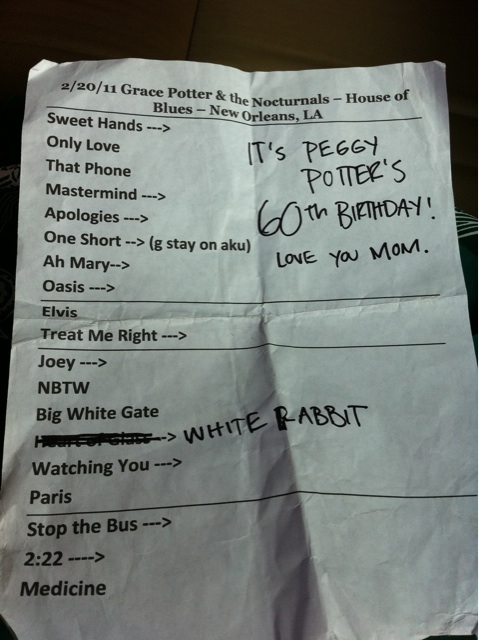 2/20/11 Grace Potter & the Nocturnals – House of
Blues – New Orleans, LA
Sweet Hands --->
Only Love
That Phone
Mastermind --->
Apologies --->
One Short --> (g stay on aku)
Ah Mary-->
Oasis --->
IT'S PEGGY
POTTER'S
60th BIRTHDAY!
LOVE YOU MOM.
Elvis
Treat Me Right --->
Joey --->
NBTW
Big White Gate
Heart of Glass --> WHITE RABBIT
Watching You --->
Paris
Stop the Bus --->
2:22 ---->
Medicine